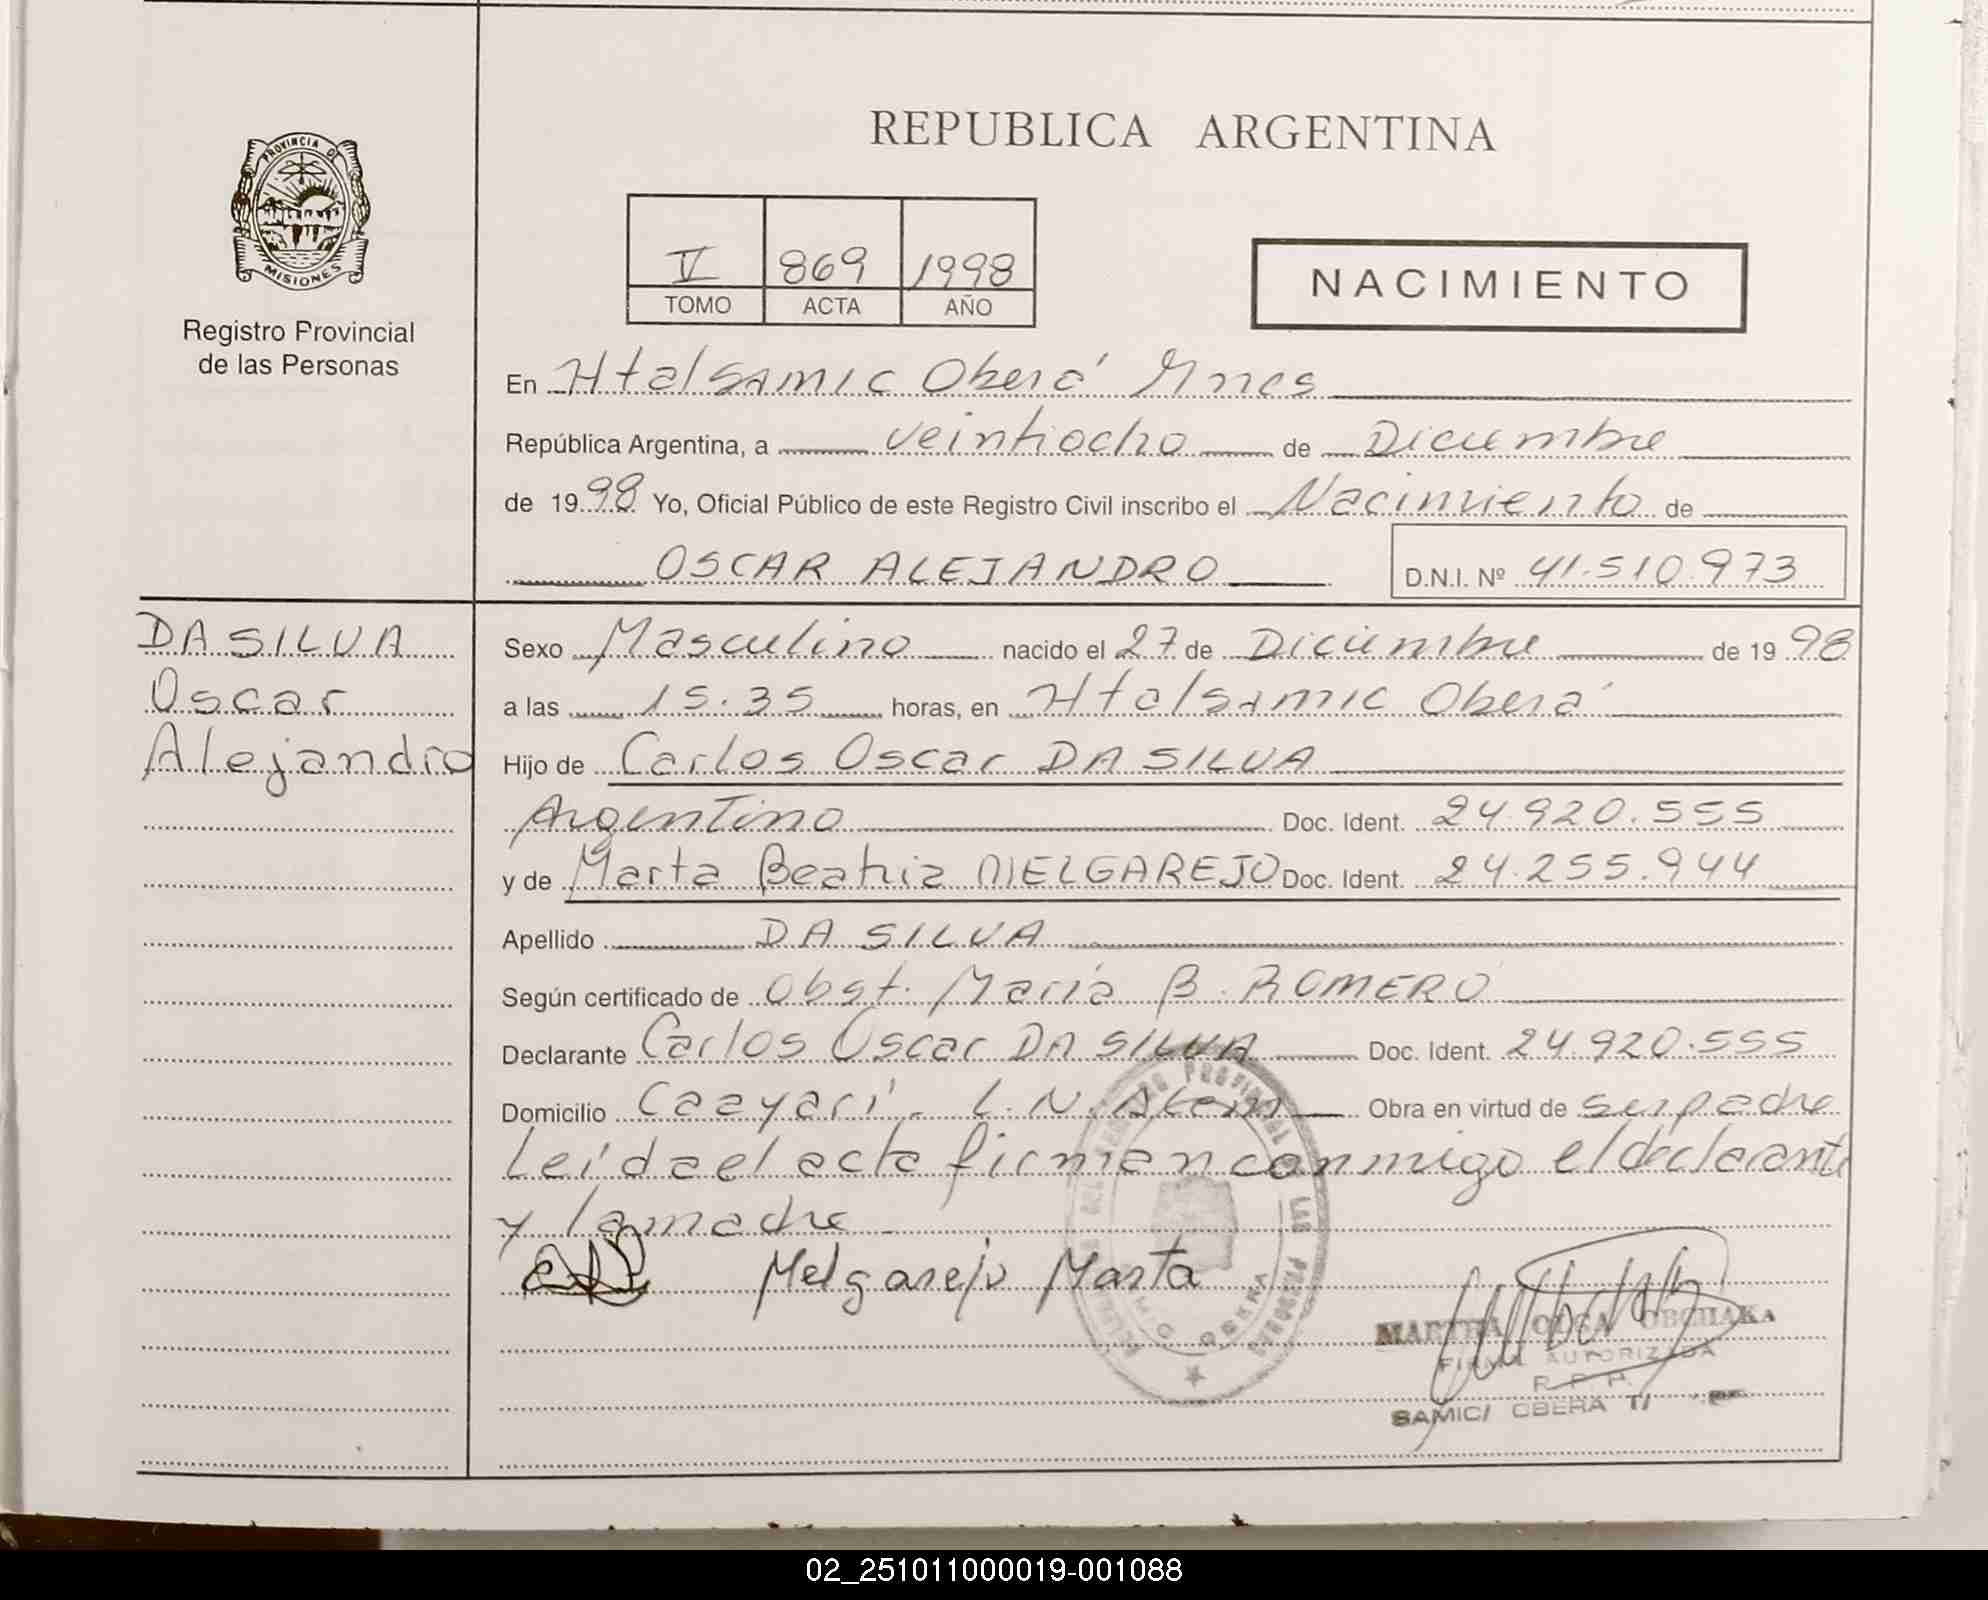 REPUBLICA ARGENTINA
PROVINCIA DE
MISIONES
Registro Provincial
de las Personas
V 869 1998
TOMO ACTA AÑO
NACIMIENTO
En Htal Samic Oberá Mnes
República Argentina, a veintiocho de Diciembre
de 1998 Yo, Oficial Público de este Registro Civil inscribo el Nacimiento de
OSCAR ALEJANDRO D.N.I. Nº 41.510.973
DA SILVA
Oscar
Alejandro
Sexo Masculino nacido el 27 de Diciembre de 1998
a las 15.35 horas, en Htal Samic Oberá
Hijo de Carlos Oscar DA SILVA
Argentino Doc. Ident. 24.920.555
y de Marta Beatriz MELGAREJO Doc. Ident. 24.255.944
Apellido DA SILVA
Según certificado de Obst. María B. ROMERO
Declarante Carlos Oscar DA SILVA Doc. Ident. 24.920.555
Domicilio Caayarí - L.N. Alem Obra en virtud de ser padre
Leída el acta firman conmigo el declarante
y la madre
Melgarejo Marta
PROVINCIAL DE LAS PERSONAS
OBERA
MARTHA OLGA OBCHAKA
FIRMA AUTORIZADA
R. P. P.
SAMIC/ OBERA
02_251011000019-001088